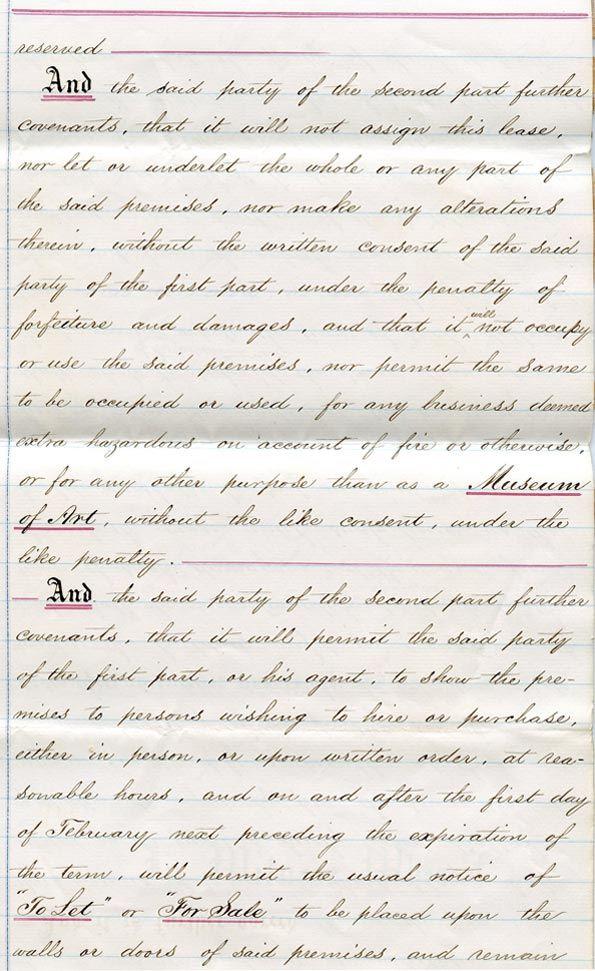 reserved
And the said party of the second part further
covenants, that it will not assign this lease,
nor let or underlet the whole or any part of
the said premises, nor make any alterations
therein, without the written consent of the said
party of the first part, under the penalty of
forfeiture and damages, and that it will not occupy
or use the said premises, nor permit the same
to be occupied or used, for any business deemed
extra hazardous on account of fire or otherwise,
or for any other purpose than as a Museum
of Art, without the like consent, under the
like penalty.
And the said party of the second part further
covenants, that it will permit the said party
of the first part, or his agent, to show the pre-
mises to persons wishing to hire or purchase,
either in person, or upon written order, at rea-
sonable hours, and on and after the first day
of February next preceding the expiration of
the term, will permit the usual notice of
"To Let" or "For Sale" to be placed upon the
walls or doors of said premises, and remain